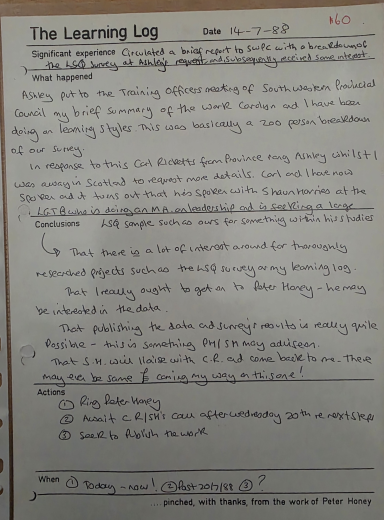 The Learning Log Date 14-7-88 N60
Significant experience Circulated a brief report to SWPC with a breakdown of
the LSQ survey at Ashley's request and subsequently received some interest.
What happened
Ashley put to the Training Officers meeting of South Western Provincial
Council my brief summary of the work Carolyn and I have been
doing on learning styles. This was basically a 200 person breakdown
of our survey.
In response to this Carl Ricketts from Province rang Ashley whilst I
was away in Scotland to request more details. Carl and I have now
spoken and it turns out that he's spoken with Shaun Harries at the
LGTB who is doing an MA on leadership and is seeking a large
Conclusions LSQ sample such as ours for something within his studies
↳ That there is a lot of interest around for thoroughly
researched projects such as the LSQ survey or my learning log.
That I really ought to get on to Peter Honey - he may
be interested in the data.
That publishing the data and survey's results is really quite
possible - this is something PH/SH may advise on.
That S.H. will liaise with C.R. and come back to me. There
may even be some £ coming my way on this one!
Actions
① Ring Peter Honey
② Await CR/SH's call after Wednesday 20th re. next steps
③ Seek to publish the work
When ① Today - now! ② Post 20/7/88 ③ ?
....pinched, with thanks, from the work of Peter Honey